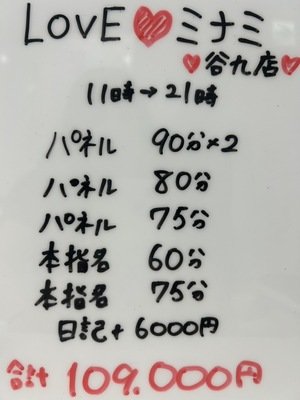 LOVE♥ミナミ
♥谷九店♥
11時→21時
パネル 90分×2
パネル 80分
パネル 75分
本指名 60分
本指名 75分
日記+6000円
合計 109.000円